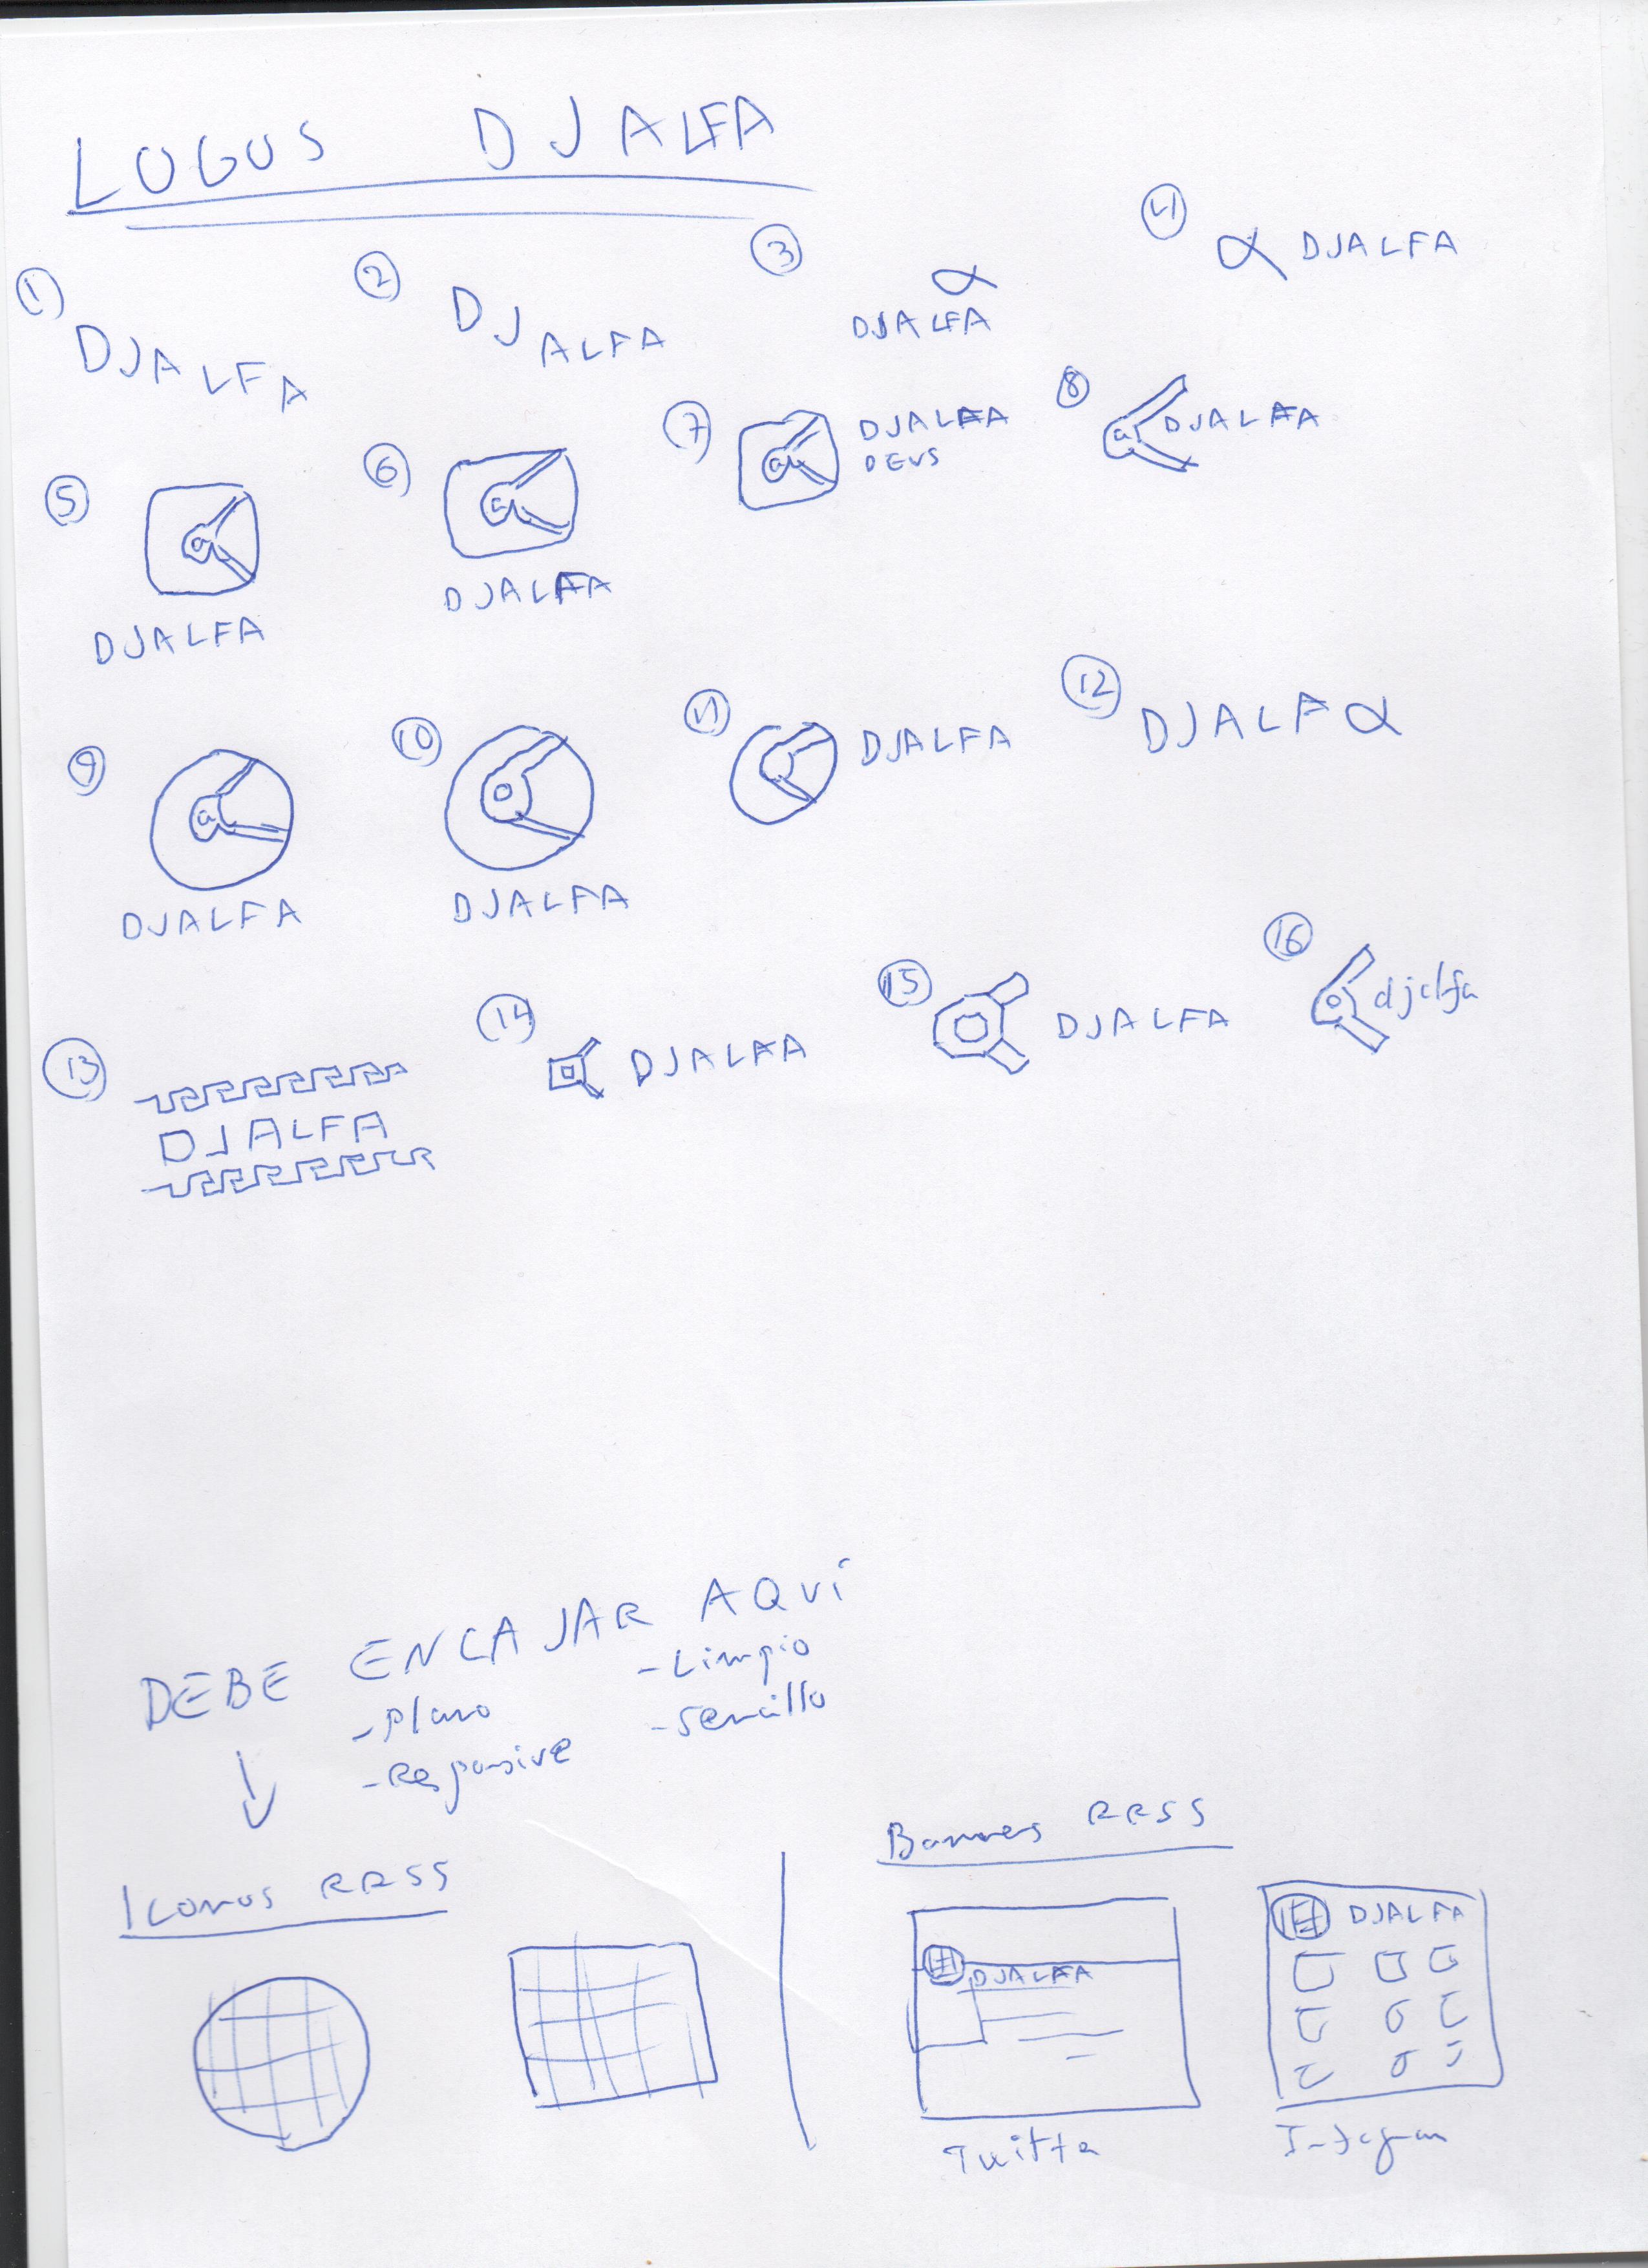 LOGOS DJ ALFA
① DJALFA
② DJ ALFA
③ α
DJALFA
④ α DJALFA
⑤ a
DJALFA
⑥ a
DJALFA
⑦ a DJALFA
DEUS
⑧ a DJALFA
⑨ a
DJALFA
⑩
DJALFA
⑪ DJALFA
⑫ DJALFα
⑬
DJALFA
⑭ DJALFA
⑮ DJALFA
⑯ djalfa
DEBE ENCAJAR AQUÍ
-Plano
-Responsive
-Limpio
-Sencillo
Iconos RRSS
Banners RRSS
DJALFA
Twitter
DJALFA
Instagram